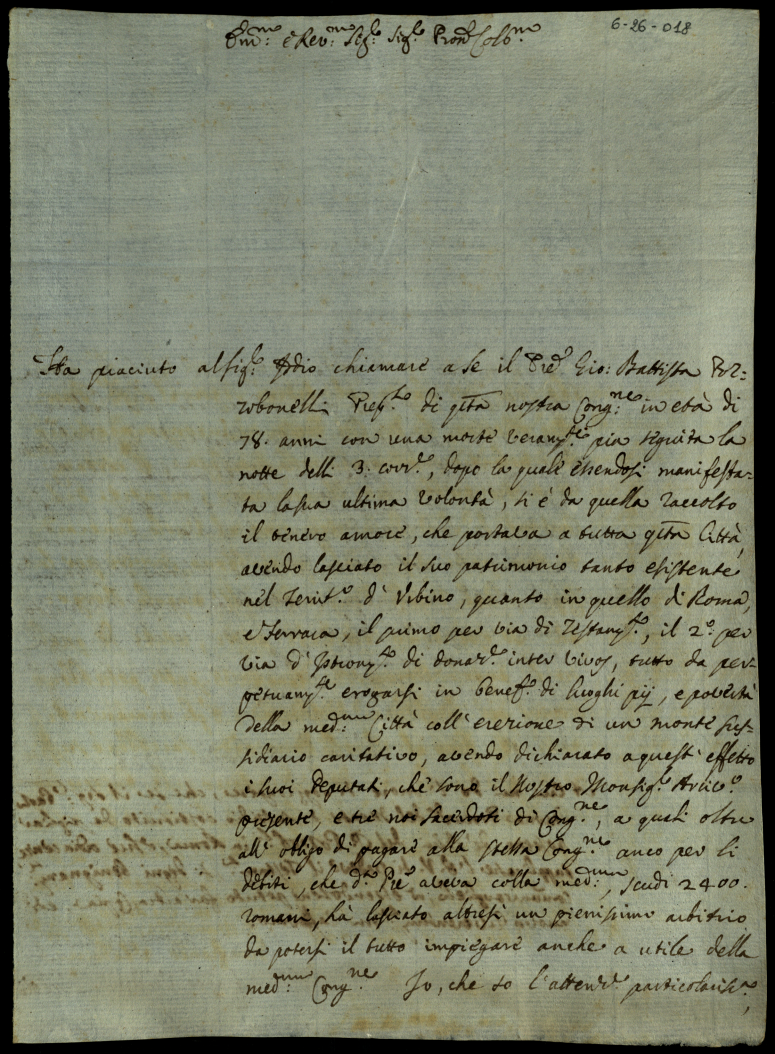 6-26-018
Em:mo e Rev:mo Sig:re Sig:re Pron Col:mo
Ha piaciuto al Sig:re Iddio chiamare a Se il Pre Gio: Battista
Pref:to di qsta nostra Cong:ne in età di
78. anni con una morte veram:te pia seguita la
notte delli 3. corr:e, dopo la quale essendosi manifesta-
ta la sua ultima volontà, si è da quella raccolto
il tenero amore, che portava a tutta qsta Città,
avendo lasciato il suo patrimonio tanto esistente
nel Territ:o d'Urbino, quanto in quello di Roma,
e Ferrara, il primo per via di Testam:to, il 2.o per
via d'Istrom:to di donaz:e inter vivos, tutto da per-
petuam:te erogarsi in benef:o di luoghi pij, e povertà
della med:ma Città coll'erezione di un monte sus-
sidiario caritativo, avendo dichiarato a questi effetto
i suoi deputati, che sono il Nostro Monsig:r Arciv:o
presente, e tre noi Sacerdoti di Cong:ne, a quali oltre
all'obligo di pagare alla stessa Cong:ne anco per li
debiti, che d:o Pre aveva colla med:ma, scudi 2400.
romani, hà lasciato altresì un pienissimo arbitrio
da potersi il tutto impiegare anche a utile della
med:ma Cong:ne Io, che so l'attenz:e particolariss:a,